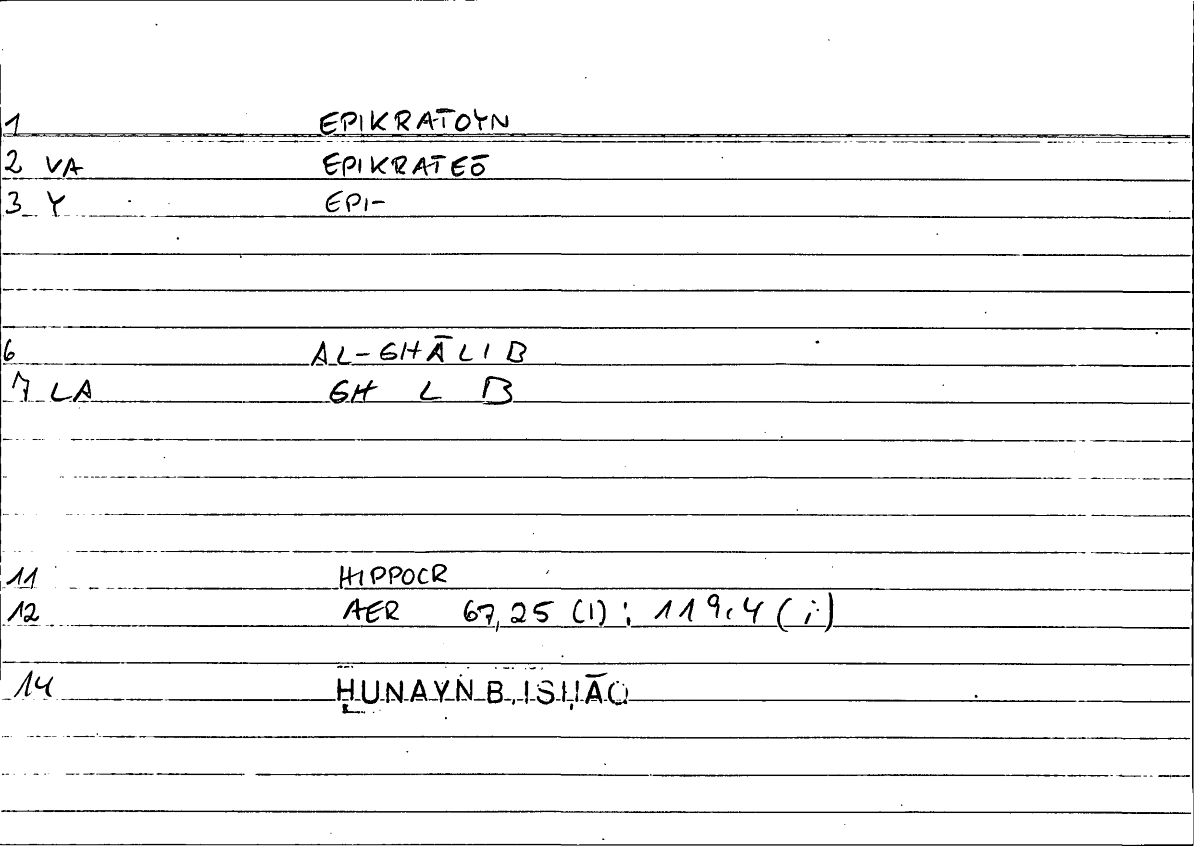 1 EPIKRATŌYN
2 VA EPIKRATEŌ
3 Y EPI-
6 AL-GHĀLIB
7 LA GH L B
11 HIPPOCR
12 AER 67,25 (1); 119,4 (i)
14 ḤUNAYN B. ISḤĀQ